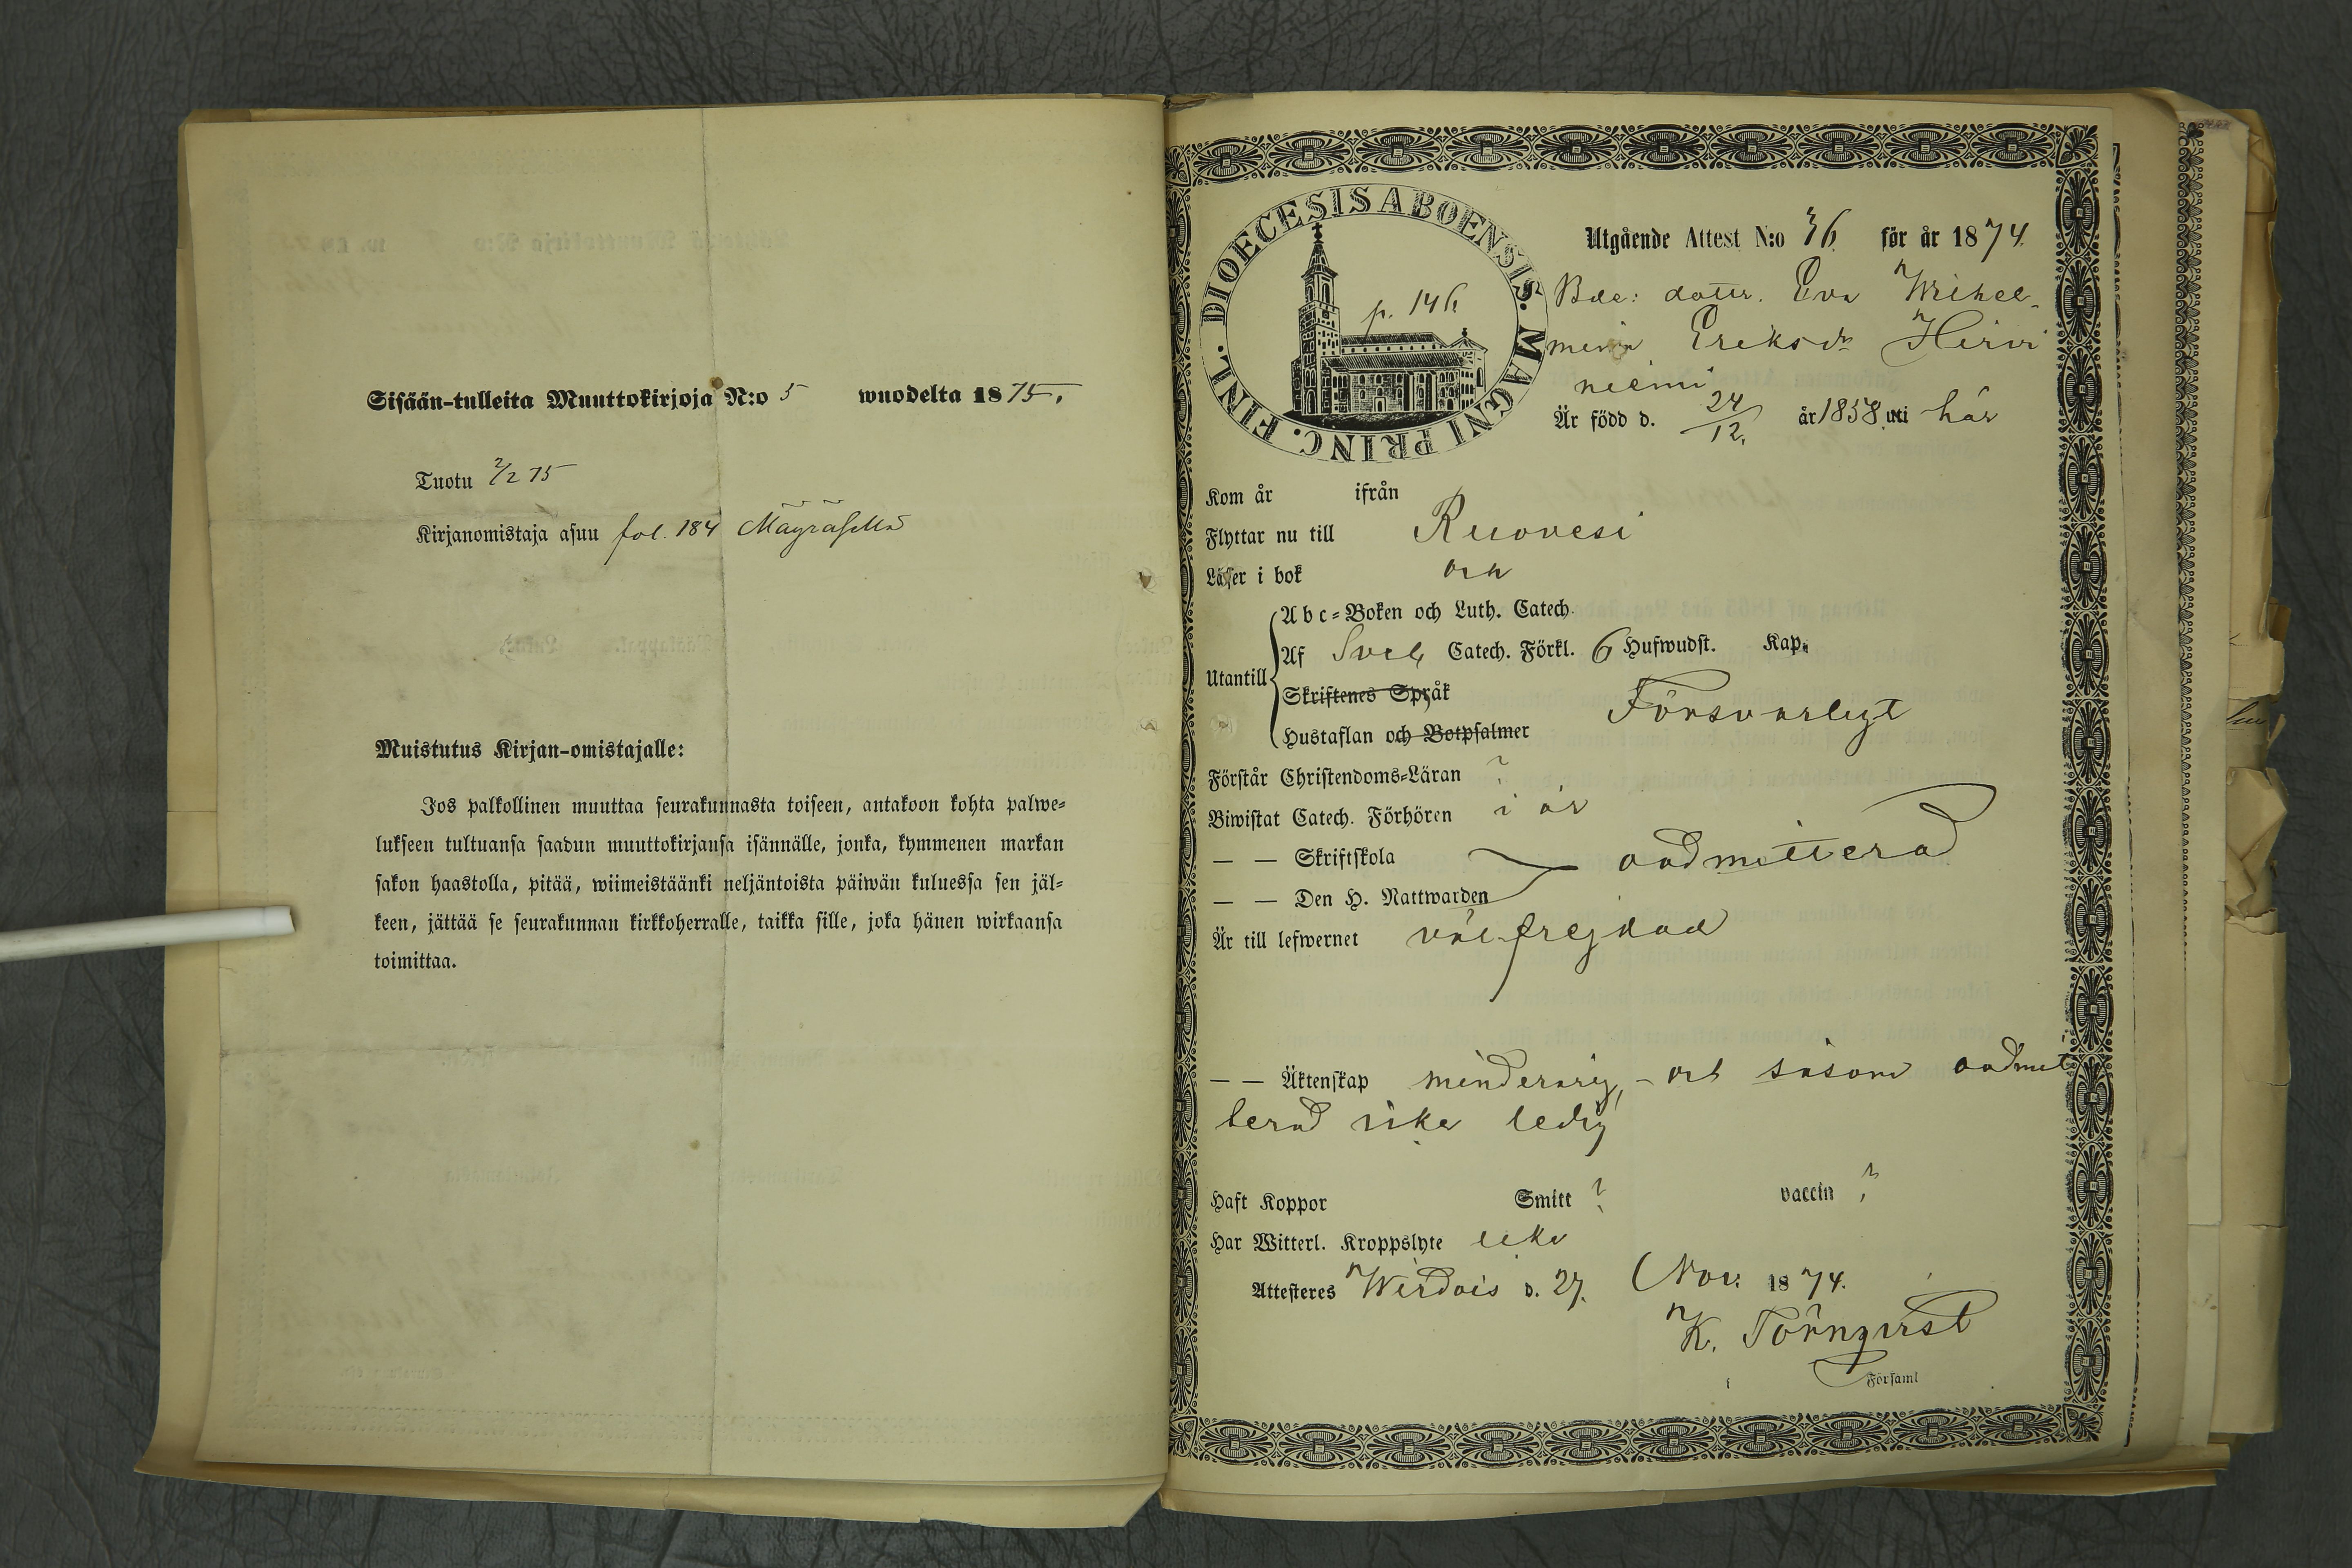 Sisään-tulleita Muuttokirjoja N:o 5 wuodelta 1875.
Tuotu 2/2 75
Kirjanomistaja asuu fol. 184 Mäyräsellä
Muistutus Kirjan-omistajalle:
Jos palkollinen muuttaa seurakunnasta toiseen, antakoon kohta palwe-
lukseen tultuansa saadun muuttokirjansa isännälle, jonka, kymmenen markan
sakon haastolla, pitää, wiimeistäänki neljäntoista päiwän kuluessa sen jäl-
keen, jättää se seurakunnan kirkkoherralle, taikka sille, joka hänen wirkaansa
toimittaa.
DIOECESIS ABOENSIS. MAGNI PRINC. FINL.
p. 146
Utgående Attest N:o 36 för år 1874
Bde: dotter. Eva Wilhel-
mina Eriksdr Hirvi
niemi
Är född d. 24/12. år 1858 uti här
Kom år ifrån
Flyttar nu till Ruovesi
Läser i bok och
Utantill
Abc-Boken och Luth. Catech.
Af Sveb. Catech. Förkl. 6 Hufwudst. Kap.
Skriftenes Språk
Hustaflan och Botpsalmer
Försvarligt
Förstår Christendoms-Läran ?
Biwistat Catech. Förhören i år
— — Skriftskola oadmitterad
— — Den H. Nattwarden
Är till lefwernet välfrejdad
— — Äktenskap minderårig, - och såsom oadmit
terad icke ledig
Haft Koppor Smitt ? vaccin ?
Har Witterl. Kroppslyte icke
Attesteres Wirdois d. 27. Nov. 1874.
K. Törnqvist
Församl